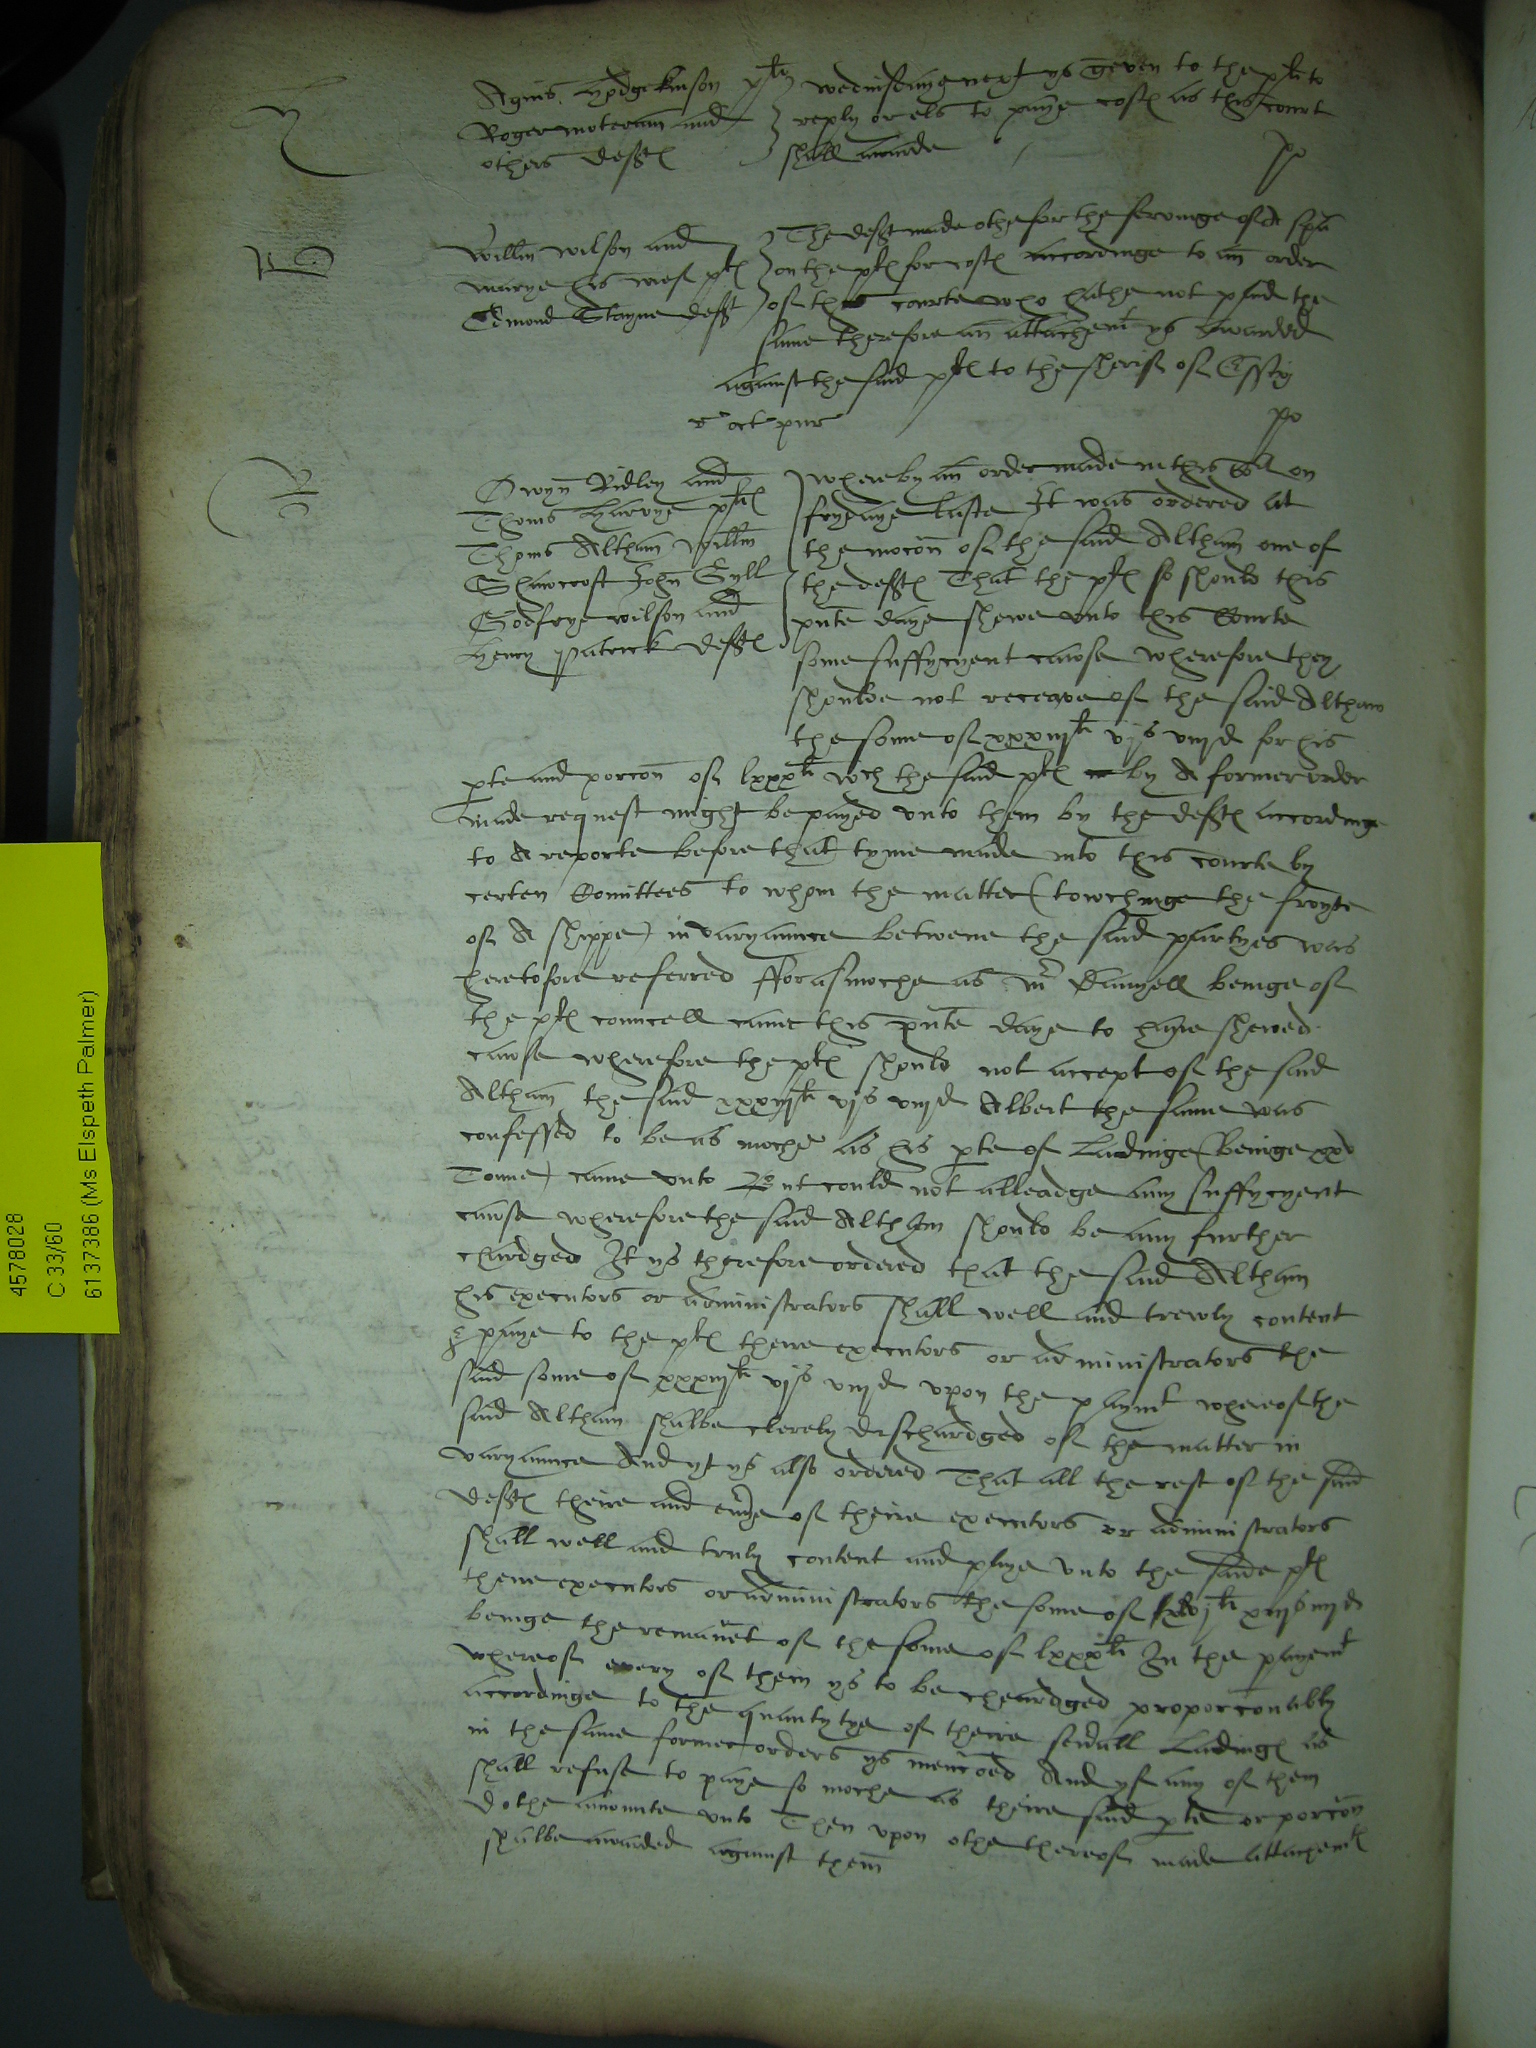 Agnis Hodgekinson pltf
Roger moteram and
others deftes
wednisdaye next ys geven to the pltf to
reply or els to paye costes as this court
shall awarde
po
Willm wilson and
marye his wief pltes
Edmond Stayne deft
The deft made othe for the servinge of A spa
on the pltes for costes accordinge to an order
of this courte who hathe not paid the
same therefore an attachemt ys awarded
against the said pltes to the sherif of Essex
oct pur
po
Owyn Ridley and
Thoms Harvye pltes
Thoms Altham Willm
Shawcroft John Gyll
Godfrye wilson and
Henry Patrick deftes
whereby an order made in this on
frydaye laste It was ordered at
the mocon of the said Altham one of
the deftes That the pltes so should this
pnte daye shewe unto this Courte
some suffycyent cawse wherefore they
shoulde not receave of the said Altham
the some of xxxiijli vjs viijd for his
pte and porcon of lxxxli wch the said pltes by A former order
made request might be payed unto them by the deftes accordinge
to A reporte before that tyme made into this courte by
certen Comittees to whom the matter (towchinge the
of A shippe) in varyaunce betwene the said partyes was
heretofore referred fforasmoche as mr Danyell beinge of
the pltes councell came this pnte daye to have shewed
cawse wherefore the pltes should not accept of the said
Altham the said xxxiijli vjs viijd Albeit the same was
confessed to be as moche as his pte of Ladinge (Beinge xxv
Tonne) came unto But could not alleadge any suffycyent
cawse wherefore the said Altham should be any further
chardged It ys therefore ordered that the said Altham
his executors or administrators shall well and trewly content
& paye to the pltes theire executors or administrators the
said some of xxxiijli vjs viijd upon the paymt whereof the
said Altham shalbe clerely dischardged of the matter in
varyaunce And yt ys also ordered That all the rest of the said
deftes theire and evrye of theire executors or administrators
shall well and truly content and paye unto the saide pltes
theire executors or administrators the some of xlvjli xiijs iiijd
beinge the remanet of the some of lxxxli In the payemt
whereof every of them ys to be cheardged proporconably
accordinge to the quantytye of theire sevrall Ladinges as
in the same former orders ys mencoed And yf any of them
shall refuse to paye so moche as theire said pte or porcon
dothe amounte unto Then upon othe thereof made attachemtes
shalbe awarded against them
4578028
C 33/60
6137386 (Ms Elspeth Palmer)